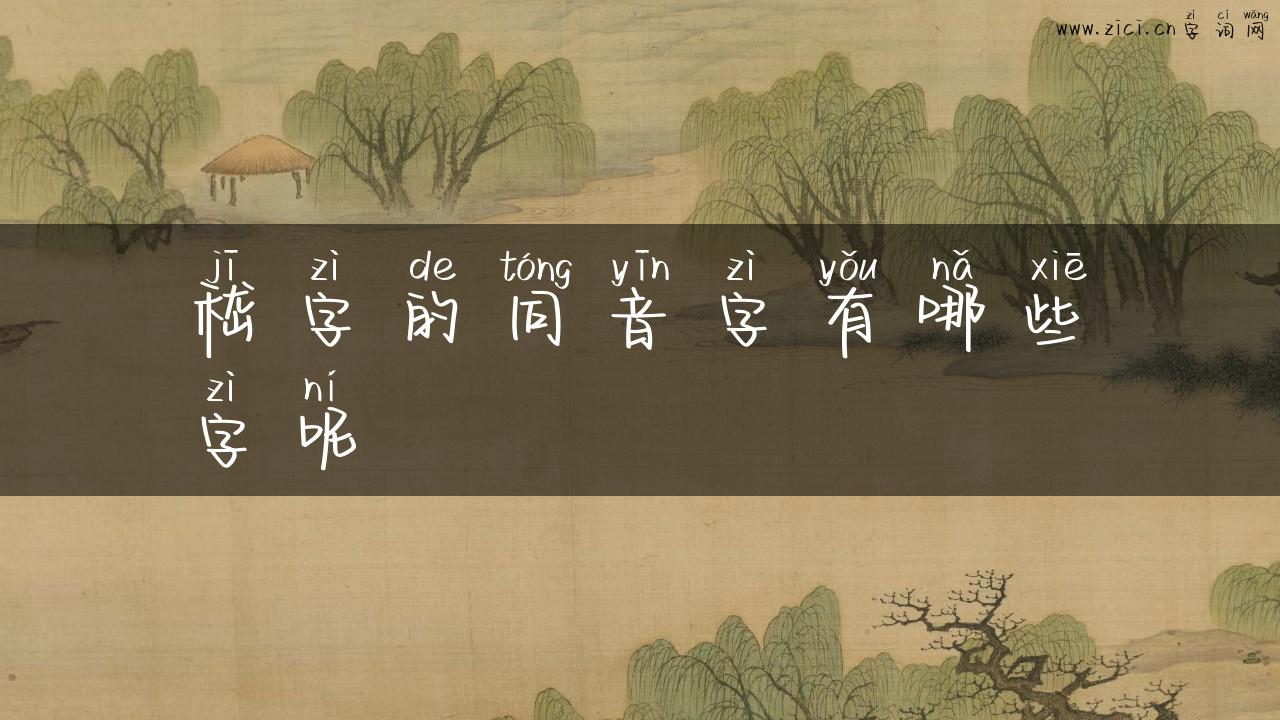 www.zici.cn zì cí wǎng
字词网
jī zì de tóng yīn zì yǒu nǎ xiē
嵇字的同音字有哪些
zì ní
字呢